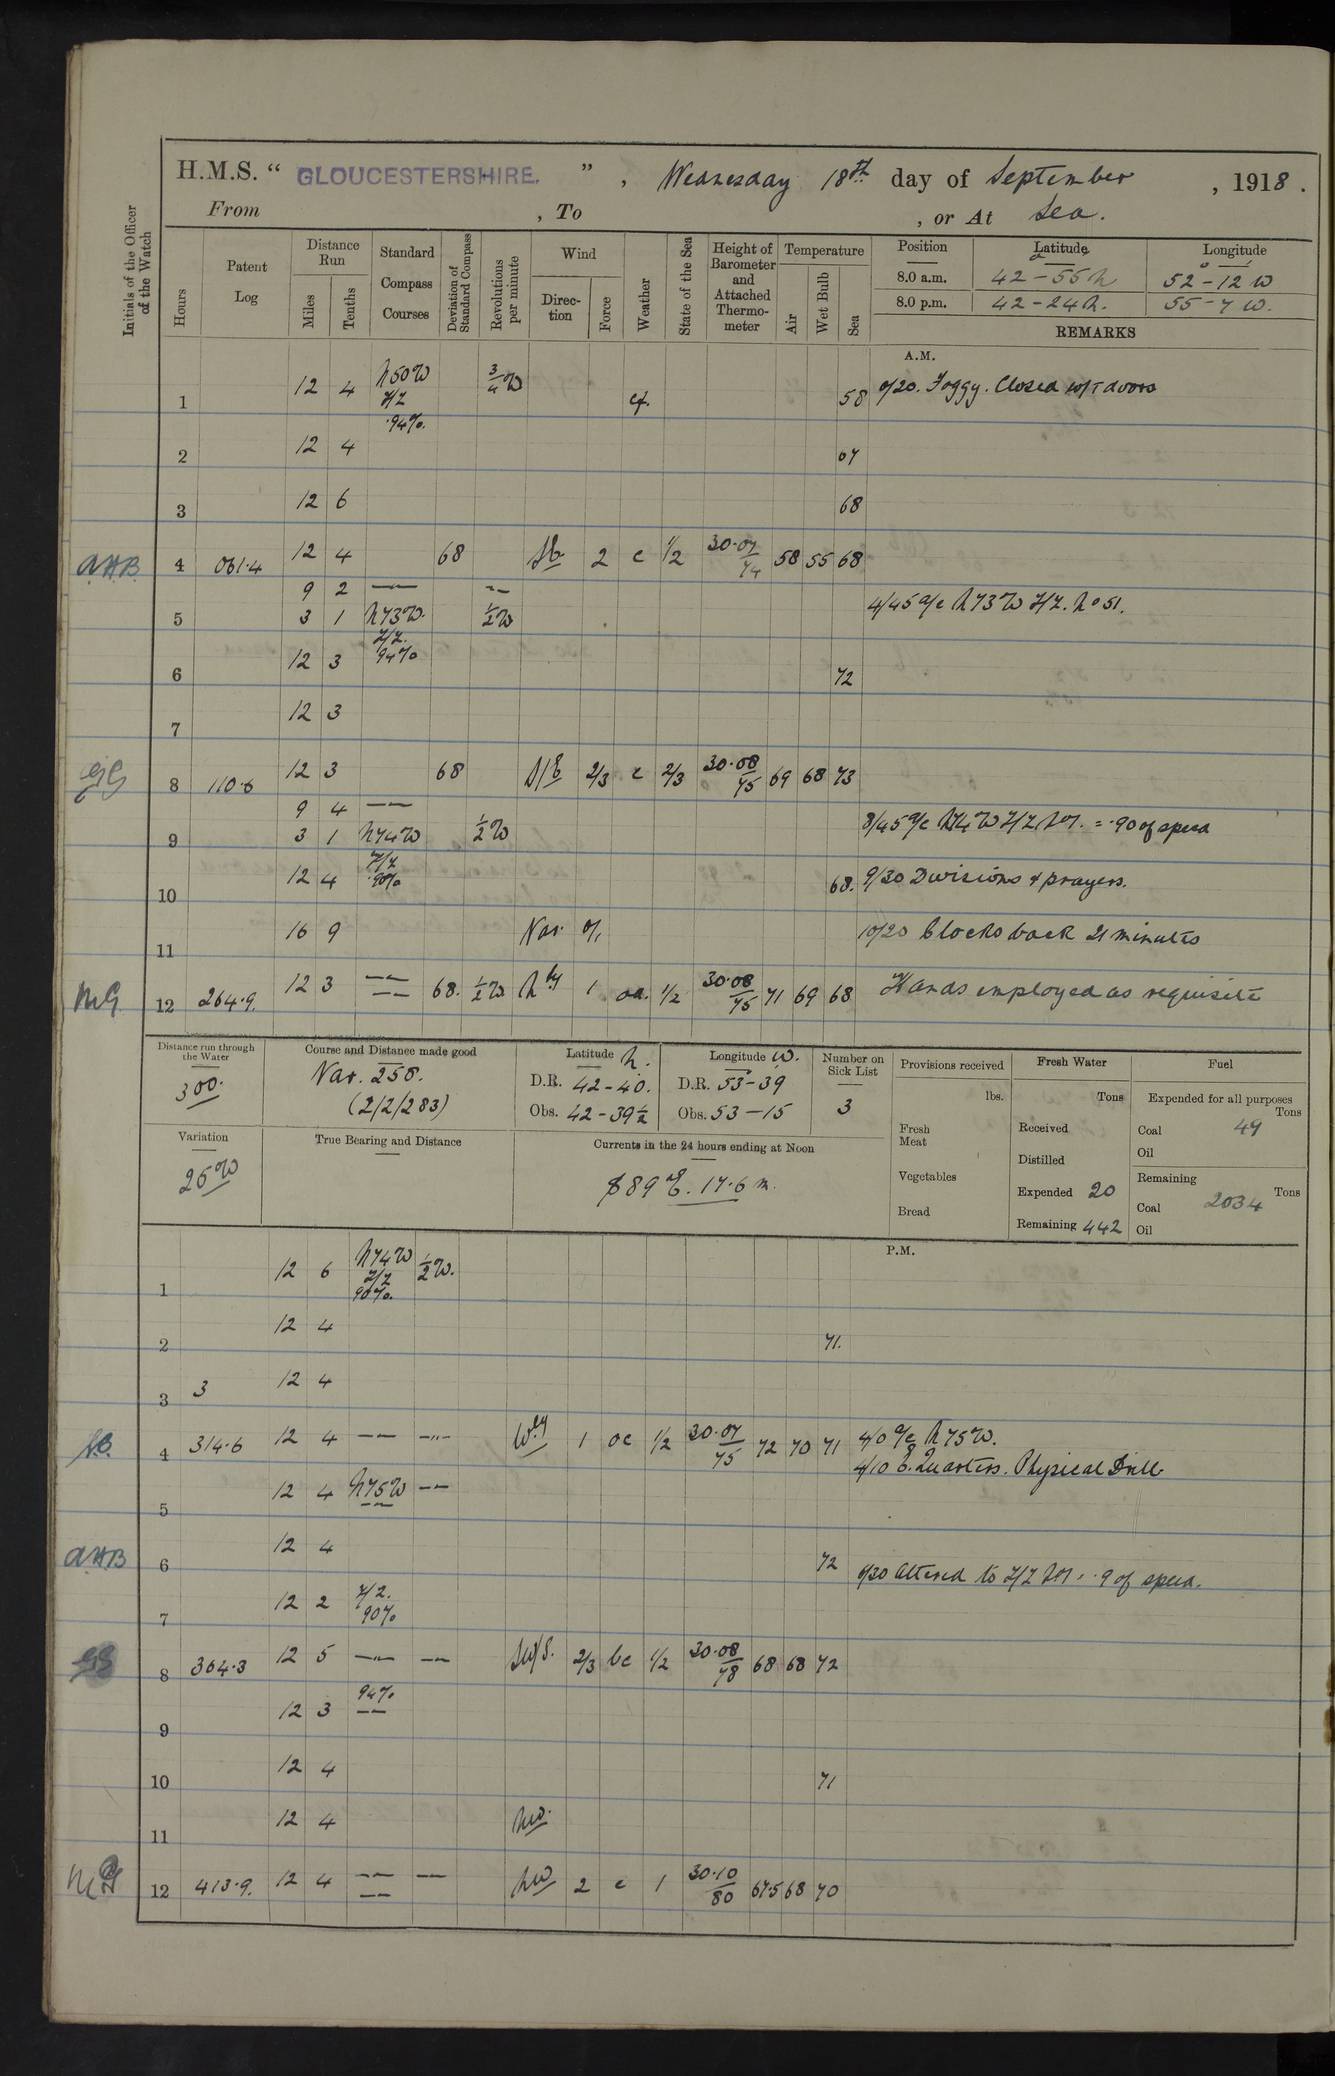 H.M.S. “ GLOUCESTERSHIRE. ” , Wednesday 18th day of September , 1918 .
From , To , or At Sea.
Initials of the Officer of the Watch
Hours
Patent Log
Distance Run
Miles
Tenths
Standard Compass Courses
Deviation of Standard Compass
Revolutions per minute
Wind
Direction
Force
Weather
State of the Sea
Height of Barometer and Attached Thermometer
Temperature
Air
Wet Bulb
Sea
Position Latitude Longitude
8.0 a.m. 42 - 55 N 52 - 12 W
8.0 p.m. 42 - 24 N. 55 - 7 W.
REMARKS
A.M.
1 12 4 N50W 3/4 W 58 0/20. Foggy. Closed W/T doors
Z/Z
.94%.
2 12 4
3 12 6 68
A.H.B. 4 061.4 12 4 68 2 c 1/2 30.07/74 58 55 68
9 2 —"— -"-
5 3 1 N73W. 1/2 W 4/45 a/c N73W Z/Z. No 51.
Z/Z.
94%
6 12 3 72
7 12 3
8 110.6 12 3 68 2/3 c 2/3 30.08/75 69 68 73
9 4 —"—
9 3 1 N74W 1/2 W 8/45 a/c N74W Z/Z = .90 of speed
Z/Z
90%
10 12 4 68. 9/30 Divisions & prayers.
11 16 9 Var 0/1 10/20 Clocks back 21 minutes
12 264.9. 12 3 —"— 68. 1/2 W N'ly 1 1/2 30.08/75 71 69 68 Hands employed as requisite
Distance run through the Water
300.
Course and Distance made good
Var. 250.
(2/2/283)
Latitude N.
D.R. 42-40.
Obs. 42-39½
Longitude W.
D.R. 53-39
Obs. 53-15
Number on Sick List
3
Provisions received
lbs.
Fresh Meat
Vegetables
Bread
Fresh Water
Tons
Received
Distilled
Expended 20
Remaining 442
Fuel
Expended for all purposes
Tons
Coal 49
Oil
Remaining
Tons
Coal 2034
Oil
Variation
25 W
True Bearing and Distance
Currents in the 24 hours ending at Noon
S 89 E. 17.6 m.
P.M.
1 12 6 N74W 1/2 W.
Z/Z
90%.
2 12 4 71.
3 3 12 4
4 314.6 12 4 —"— -"- W'ly 1 oc 1/2 30.07/75 72 70 71 4/0 a/c N75W.
4/10 E. Quarters. Physical Drill
5 12 4 N75W -"-
A.H.B 6 12 4 72 6/30 altered to Z/Z .9 of speed.
7 12 2 Z/Z.
90%
8 364.3 12 5 —"— -"- 2/3 bc 1/2 30.08/78 68 68 72
94%
9 12 3 —"—
10 12 4 71
11 12 4 NW.
12 413.9. 12 4 —"— —"— NW 2 c 1 30.10/80 67.5 68 70